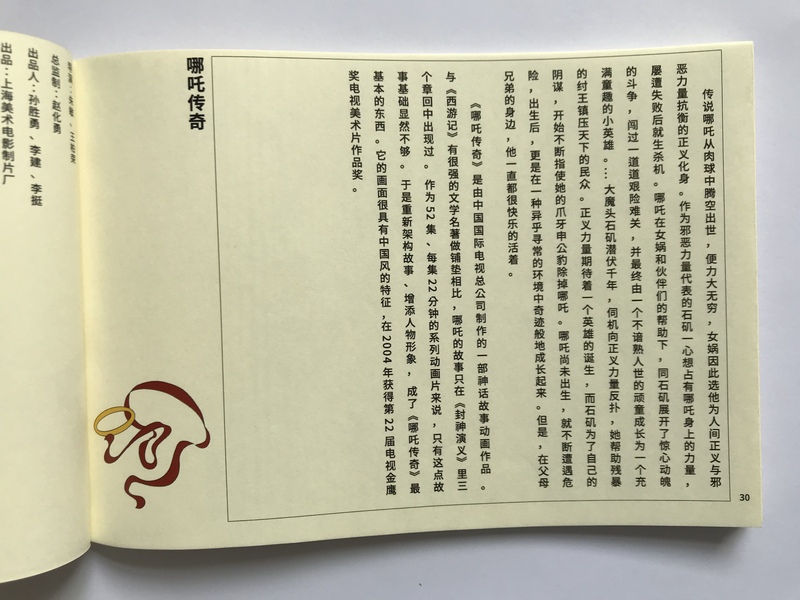 传说哪吒从肉球中腾空出世，便力大无穷，女娲因此选他为人间正义与邪
恶力量抗衡的正义化身。作为邪恶力量代表的石矶一心想占有哪吒身上的力量，
屡遭失败后就生杀机。哪吒在女娲和伙伴们的帮助下，同石矶展开了惊心动魄
的斗争，闯过一道道艰险难关，并最终由一个不谙熟人世的顽童成长为一个充
满童趣的小英雄。…大魔头石矶潜伏千年，伺机向正义力量反扑，她帮助残暴
的纣王镇压天下的民众。正义力量期待着一个英雄的诞生，而石矶为了自己的
阴谋，开始不断指使她的爪牙申公豹除掉哪吒。哪吒尚未出生，就不断遭遇危
险，出生后，更是在一种异乎寻常的环境中奇迹般地成长起来。但是，在父母
兄弟的身边，他一直都很快乐的活着。
《哪吒传奇》是由中国国际电视总公司制作的一部神话故事动画作品。
与《西游记》有很强的文学名著做铺垫相比，哪吒的故事只在《封神演义》里三
个章回中出现过。作为52集、每集22分钟的系列动画片来说，只有这点故
事基础显然不够。于是重新架构故事、增添人物形象，成了《哪吒传奇》最
基本的东西。它的画面很具有中国风的特征，在2004年获得第22届电视金鹰
奖电视美术片作品奖。
哪吒传奇
30
总监制：赵化勇
出品人：孙胜勇、李建、李挺
出品：上海美术电影制片厂